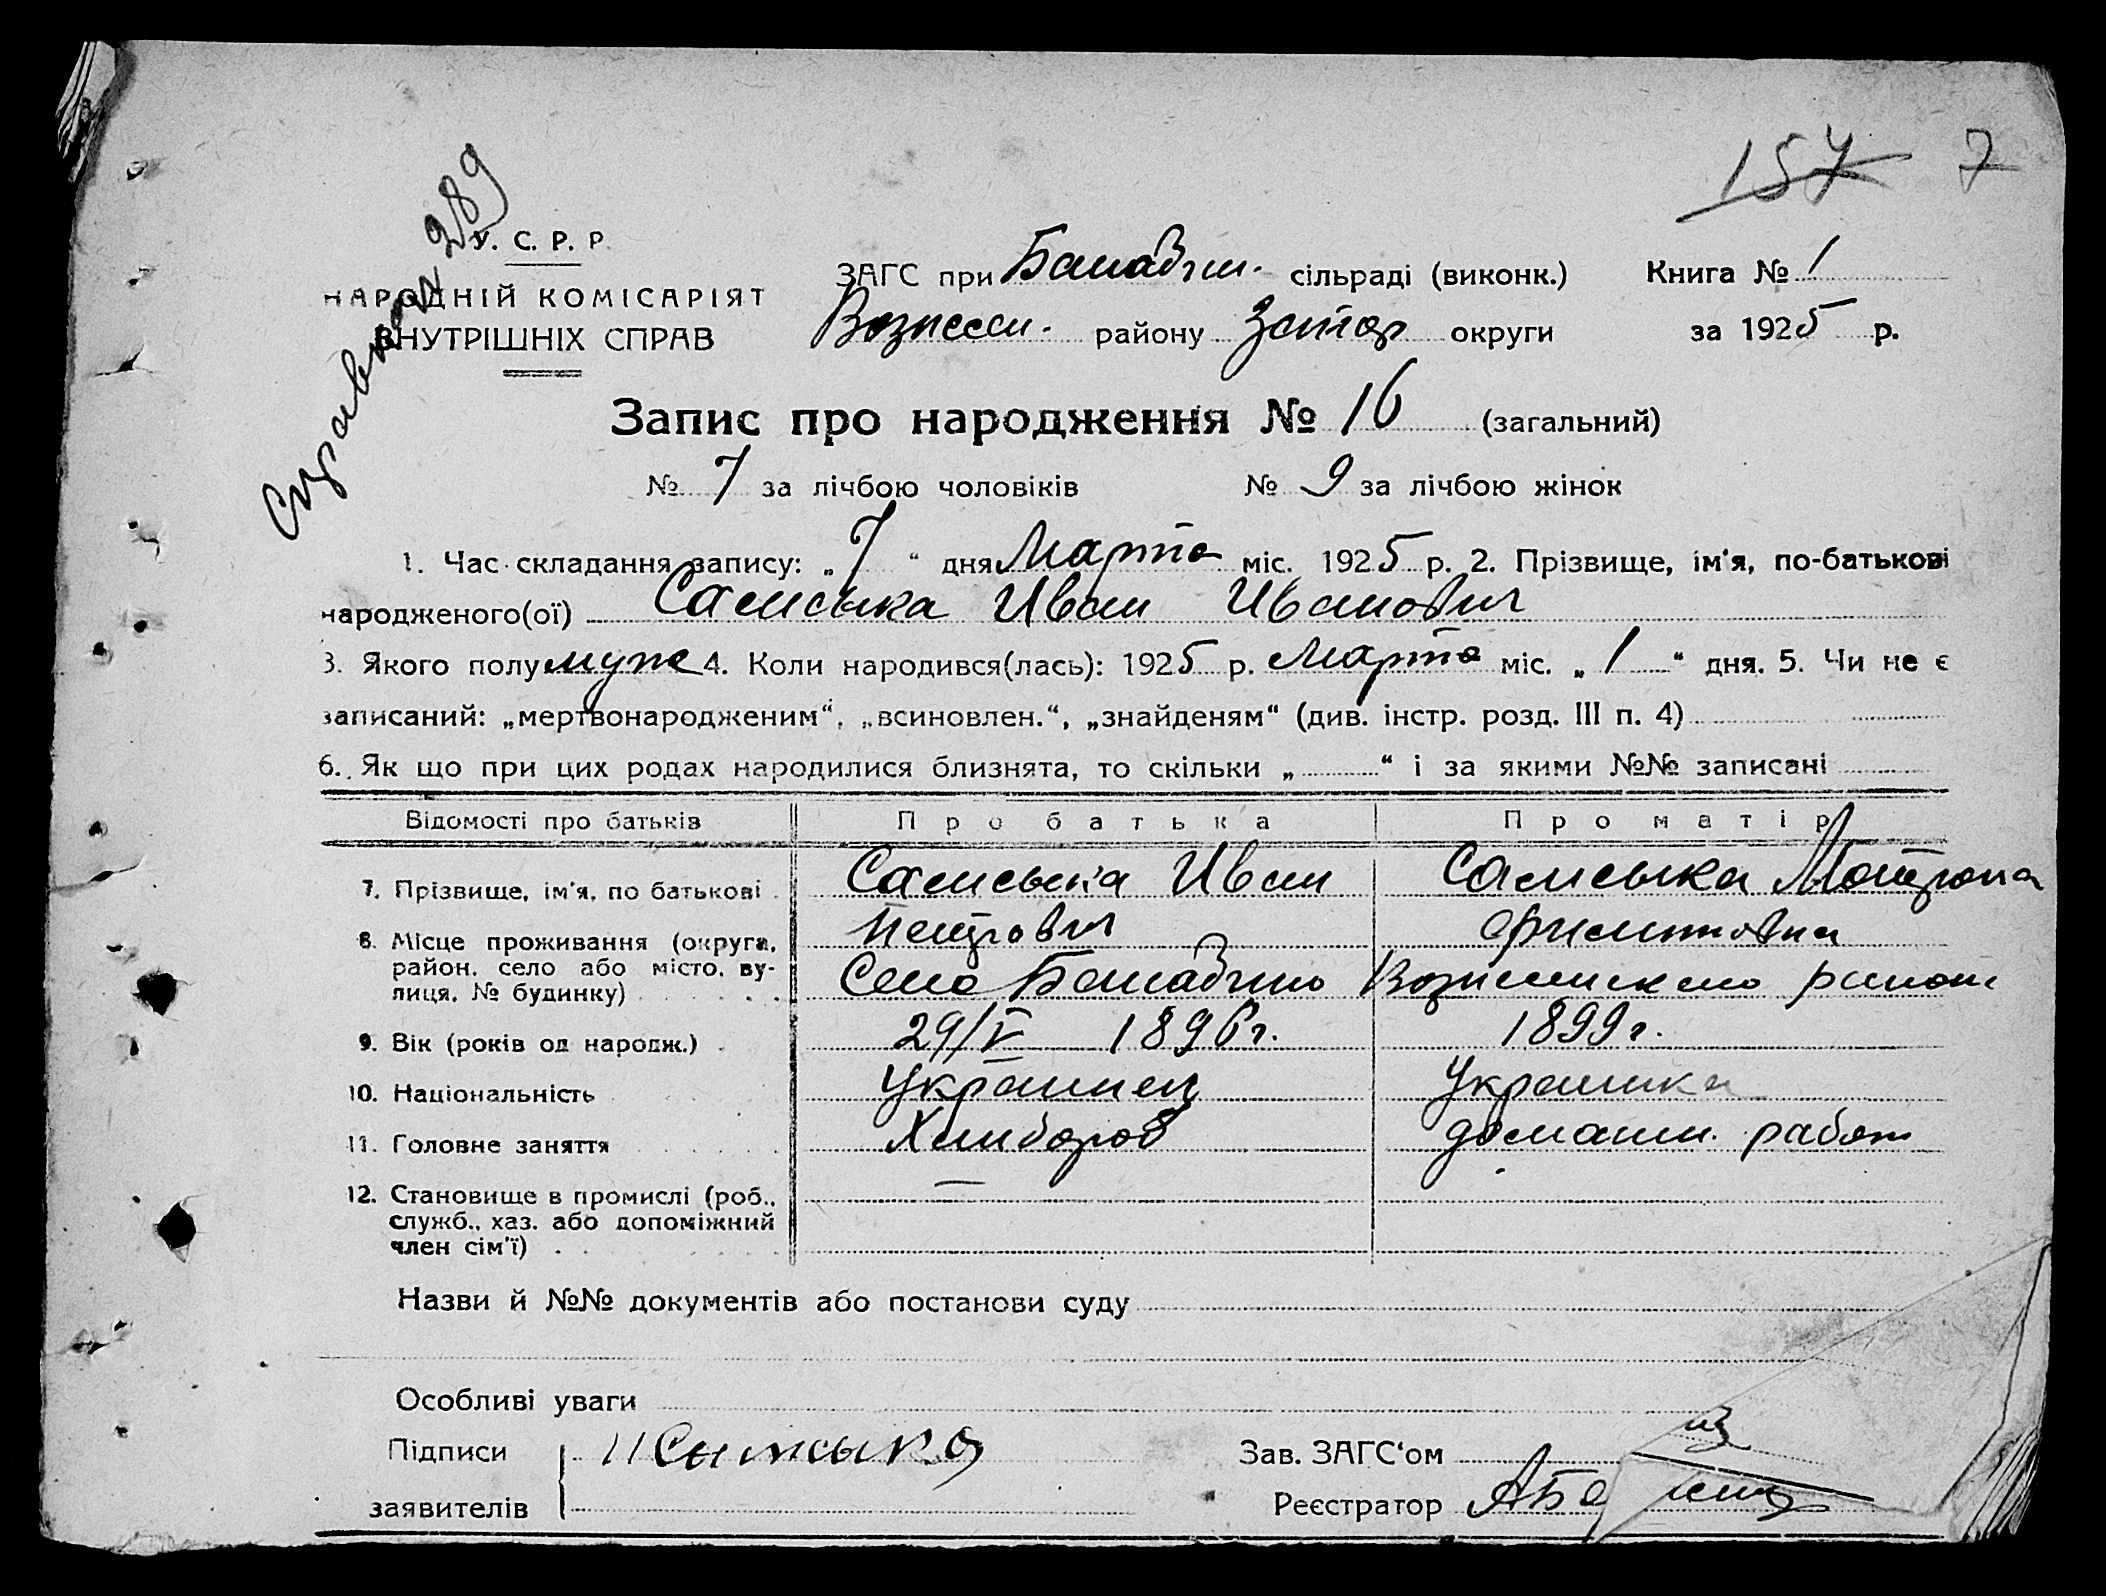 157 7
Справка 289
У. С. Р. Р.
НАРОДНІЙ КОМІСАРІЯТ
ВНУТРІШНІХ СПРАВ
ЗАГС при Балабин. сільраді (виконк.) Книга № 1
Вознесен. району Запор округи за 1925 р.
Запис про народження № 16 (загальний)
№ 7 за лічбою чоловіків № 9 за лічбою жінок
1. Час складання запису: „7“ дня Марта міс. 1925 р. 2. Прізвище, ім'я, по-батькові
народженого(ої) Самсыка Иван Иванович
3. Якого полу муже 4. Коли народився(лась): 1925 р. Марта міс. „1“ дня. 5. Чи не є
записаний: „мертвонародженим“, „всиновлен.“, „знайденям“ (див. інстр. розд. III п. 4)
6. Як що при цих родах народилися близнята, то скільки „ “ і за якими №№ записані
Відомості про батьків Про батька Про матір
7. Прізвище, ім'я, по батькові Самсыка Иван Самсыка Матрона
Петрович
8. Місце проживання (округа,
район, село або місто, ву-
лиця, № будинку) Село Балабино Вознесенского район
9. Вік (років од народж.) 29/V 1896 г. 1899 г.
10. Національність Украинец Украинка
11. Головне заняття Хлебороб домашн. работ
12. Становище в промислі (роб., —
служб., хаз. або допоміжний
член сім'ї)
Назви й №№ документів або постанови суду
Особливі уваги
Підписи И Самсыка Зав. ЗАГС'ом
заявителів Реєстратор